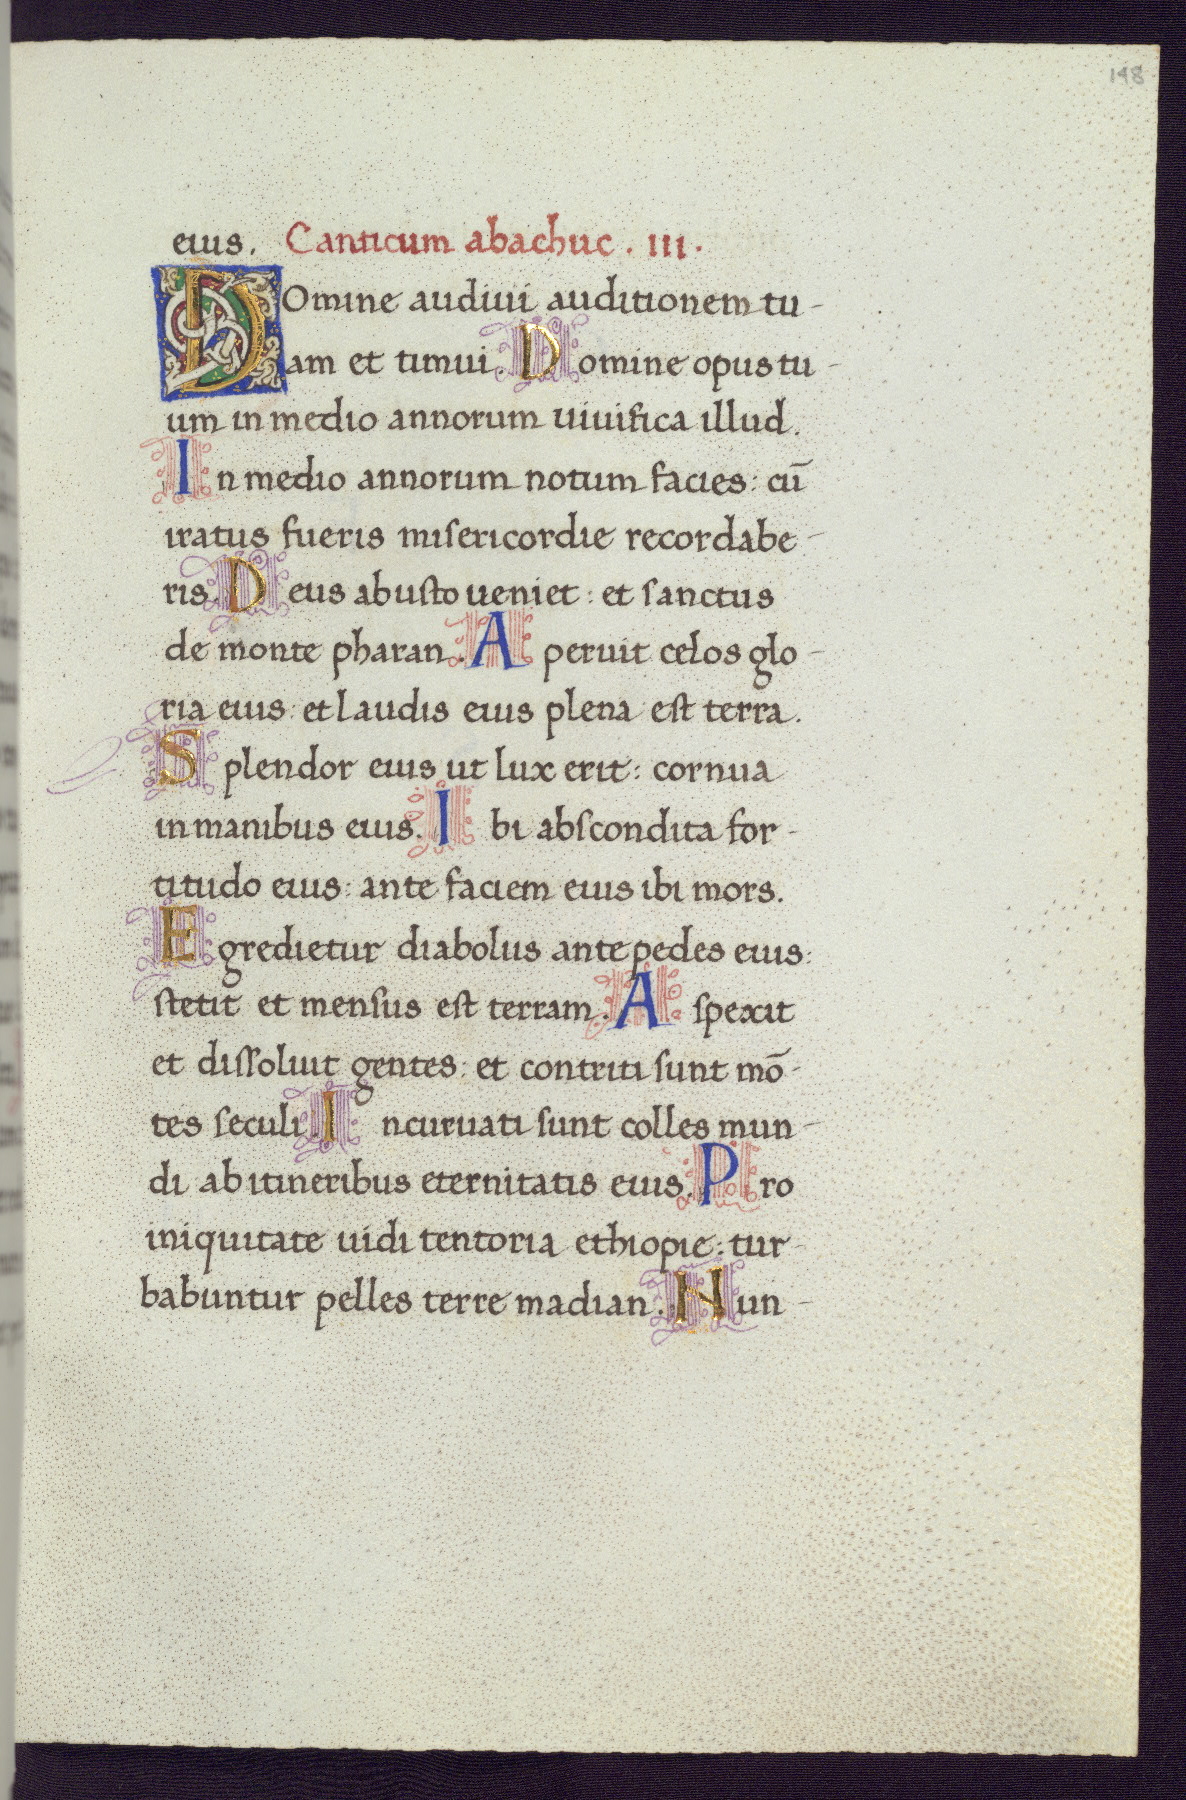 148
eius. Canticum abachuc. III.
DOmine audiui auditionem tu-
am et timui. Domine opus tu-
um in medio annorum uiuifica illud.
In medio annorum notum facies: cū
iratus fueris misericordie recordabe-
ris. Deus ab usto ueniet: et sanctus
de monte pharan. Aperuit celos glo-
ria eius: et laudis eius plena est terra.
Splendor eius ut lux erit: cornua
in manibus eius. Ibi abscondita for-
titudo eius: ante faciem eius ibi mors.
Egredietur diabolus ante pedes eius:
stetit et mensus est terram. Aspexit
et dissoluit gentes: et contriti sunt mō-
tes seculi. Incuruati sunt colles mun-
di ab itineribus eternitatis eius. Pro
iniquitate uidi tentoria ethiopie: tur-
babuntur pelles terre madian. Nun-